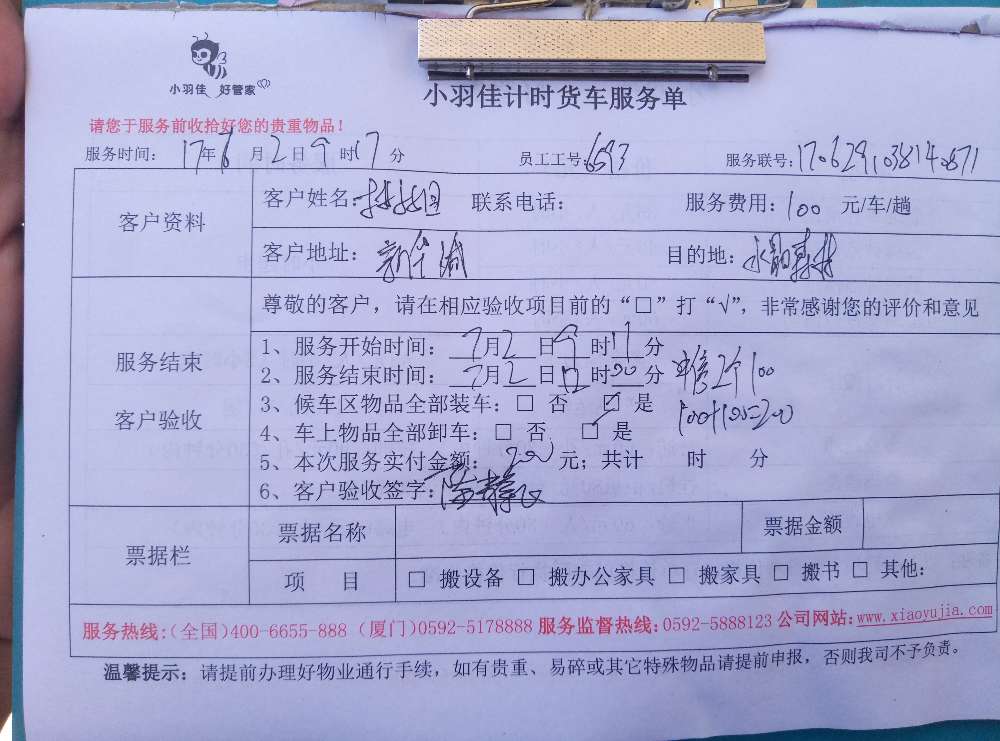 小羽佳 好管家
小羽佳计时货车服务单
请您于服务前收拾好您的贵重物品！
服务时间： 17年6月2日9时17分 员工工号：6593 服务联号：
客户资料
客户姓名： 联系电话： 服务费用：100 元/车/趟
客户地址： 新华城 目的地：水晶森林
尊敬的客户，请在相应验收项目前的“□”打“√”，非常感谢您的评价和意见
服务结束
客户验收
1、服务开始时间：7月2日9时17分
2、服务结束时间：7月2日12时30分
100
3、候车区物品全部装车：□ 否 □ 是
100+100=200
4、车上物品全部卸车：□ 否 □ 是
5、本次服务实付金额：200元；共计 时 分
6、客户验收签字：
票据栏
票据名称 票据金额
项 目 □ 搬设备 □ 搬办公家具 □ 搬家具 □ 搬书 □ 其他：
服务热线:(全国)400-6655-888 (厦门)0592-5178888 服务监督热线:0592-5888123 公司网站:www.xiaoyujia.com
温馨提示：请提前办理好物业通行手续，如有贵重、易碎或其它特殊物品请提前申报，否则我司不予负责。